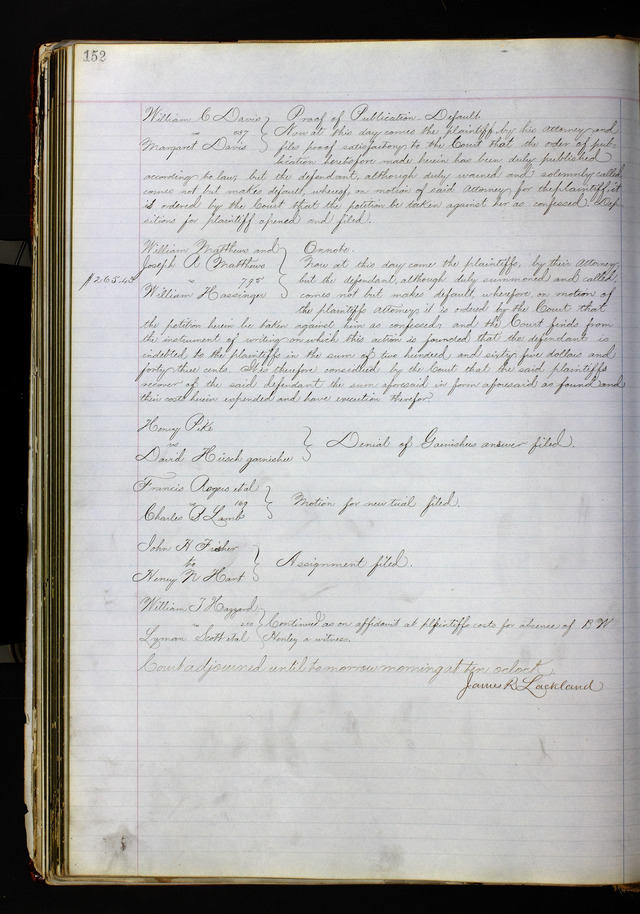 152
William C Davis } Proof of Publication Default.
vs 657 } Now at this day comes the plaintiff by his attorney and
Margaret Davis } files proof satisfactory to the Court that the order of pub-
lication heretofore made herein has been duly published
according to law, but the defendant, although duly warned and solemnly called
comes not but makes default, whereof, on motion of said Attorney for the plaintiff it
is ordered by the Court that the petition be taken against her as confessed. Depo
sitions for plaintiff opened and filed.
William Matthews and } On note.
Joseph A Matthews } Now at this day come the plaintiffs, by their Attorney,
$265.43 vs 795 } but the defendant, although duly summoned and called,
William Hassinger } comes not but makes default, wherefore on motion of
the plaintiffs attorney it is ordered by the Court that
the petition herein be taken against him as confessed, and the Court finds from
the instrument of writing on which this action is founded that the defendant is
indebted to the plaintiffs in the sum of two hundred and sixty five dollars and
forty three cents. It is therefore considered by the Court that the said plaintiffs
recover of the said defendant the sum aforesaid in form aforesaid as found and
their costs herein expended and have execution therefor.
Henry Pike
vs } Denial of Garnishees answer filed.
David Hirsch garnishee
Francis Rogers etal
vs 169 } Motion for new trial filed.
Charles Lamb
John H Fisher
to } Assignment filed.
Henry N Hart
William T Hazzard
vs } Continued as on affidavit at plaintiffs costs for absence of B W
Lyman Scott etal } Henley a witness.
Court adjourned until tomorrow morning at ten oclock
James R Lackland